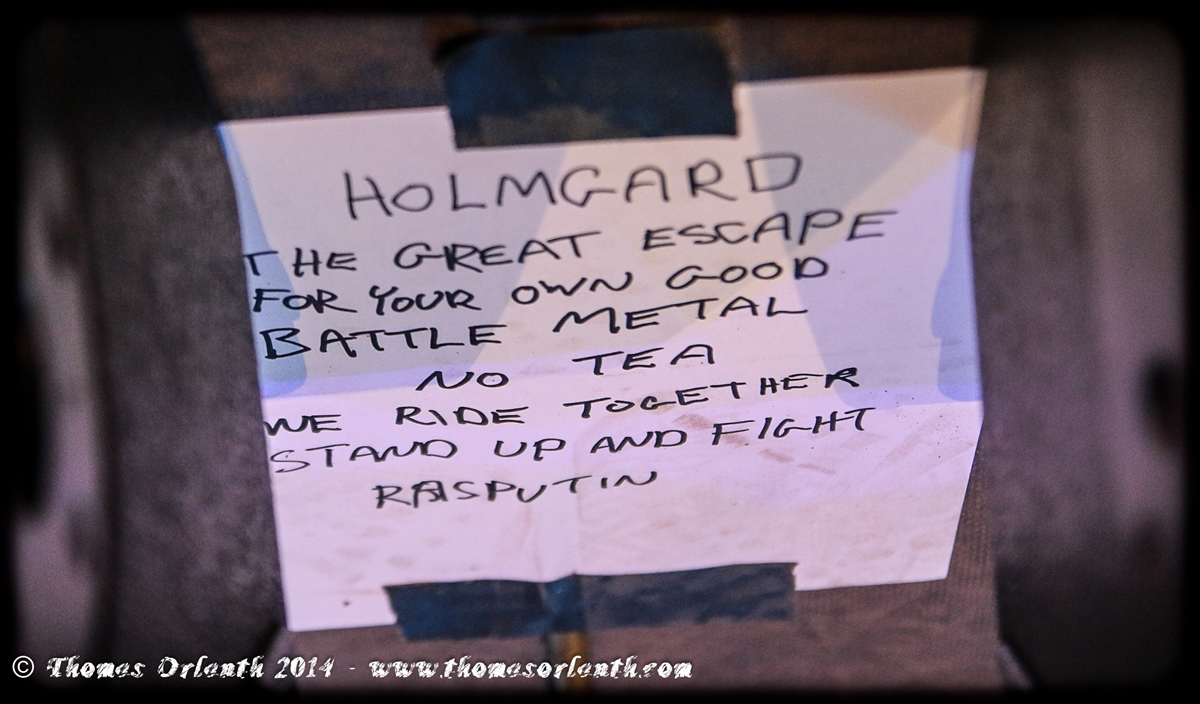 HOLMGARD
THE GREAT ESCAPE
FOR YOUR OWN GOOD
BATTLE METAL
NO TEA
WE RIDE TOGETHER
STAND UP AND FIGHT
RASPUTIN
© Thomas Orlanth 2014 - www.thomasorlanth.com